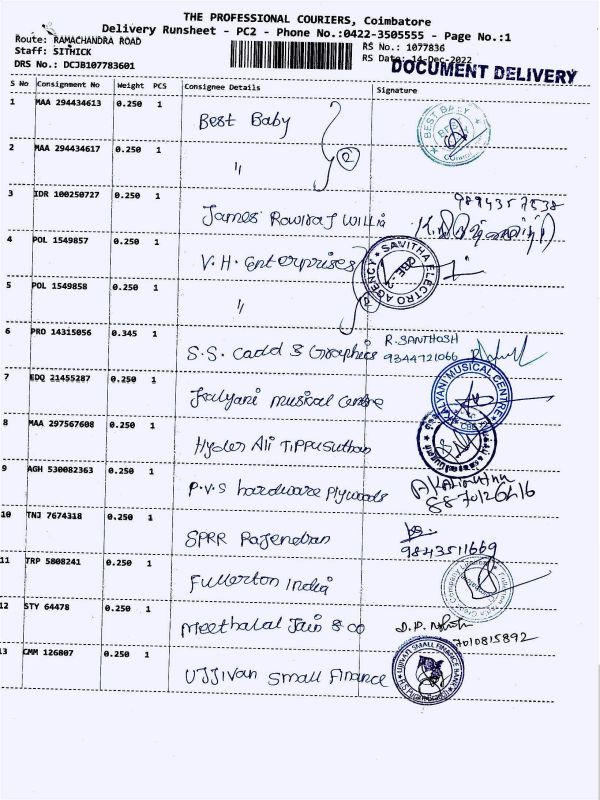 THE PROFESSIONAL COURIERS, Coimbatore
Delivery Runsheet - PC2 - Phone No.:0422-3505555 - Page No.:1
Route: RAMACHANDRA ROAD
Staff: SITHICK
DRS No.: DCJB107783601
RS No.: 1077836
RS Date: 14-Dec-2022
DOCUMENT DELIVERY
S No Consignment No Weight PCS Consignee Details Signature
1 MAA 294434613 0.250 1 Best Baby
BEST BABY
2 MAA 294434617 0.250 1 "
2
3 IDR 100250727 0.250 1 James Rowiraj Willia
9894357838
4 POL 1549857 0.250 1 V.H. Enterprises
SAVITHA ELECTRO AGENCY
CBE-2
5 POL 1549858 0.250 1 "
2
6 PRO 14315056 0.345 1 S.S. Cadd & Graphics
R.SANTHOSH
9344721066
7 EDQ 21455287 0.250 1 Kalyani musical centre
KALYANI MUSICAL CENTRE
8 MAA 297567608 0.250 1 Hyder Ali Tippusulthan
9 AGH 530082363 0.250 1 P.V.S hardware Plywoods
8870126416
10 TNJ 7674318 0.250 1 SPRR Rajendran
9843511669
11 TRP 5808241 0.250 1 Fullerton India
12 STY 64478 0.250 1 Meethalal Jain & co
7010815892
13 CMM 126807 0.250 1 Ujjivan Small Finance
UJJIVAN SMALL FINANCE BANK